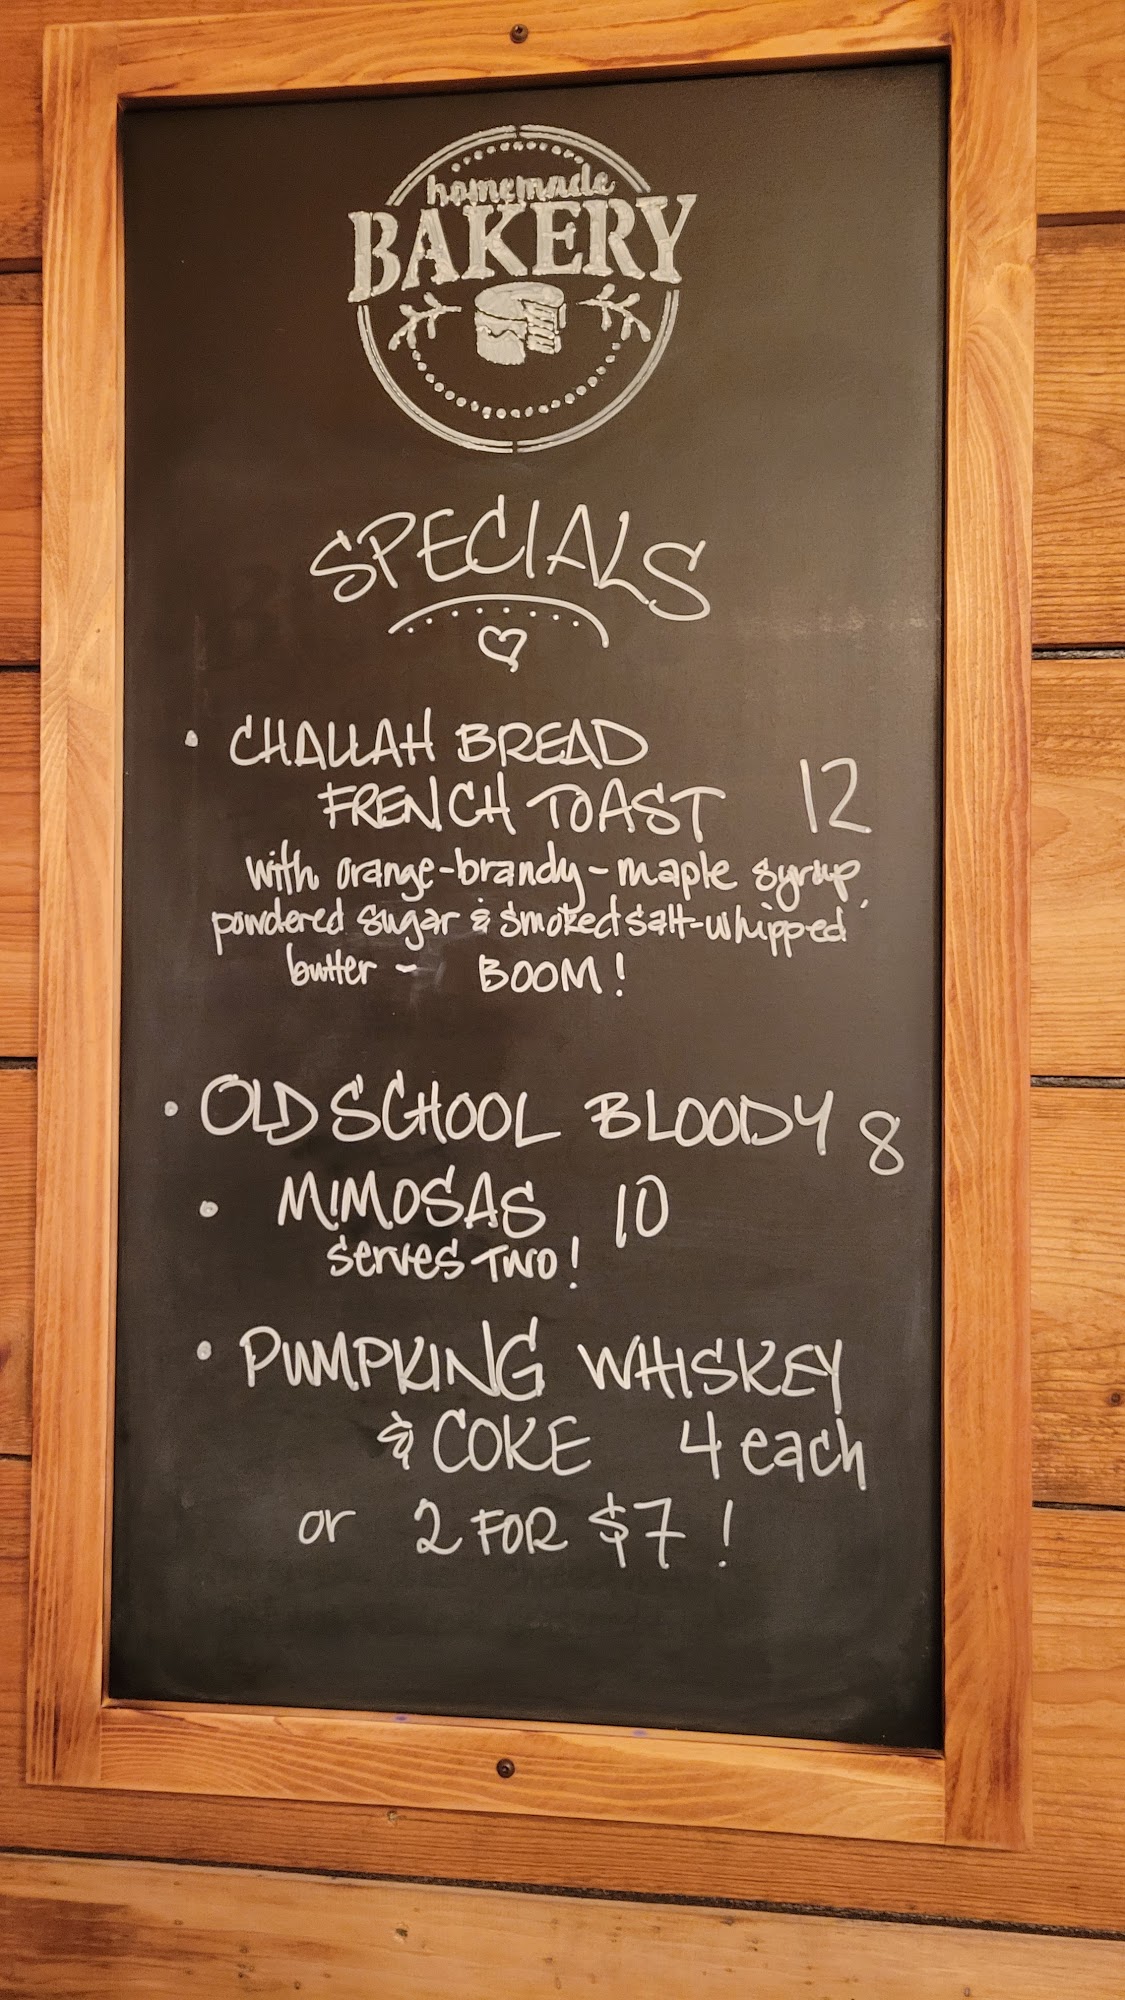 homemade
BAKERY
SPECIALS
• CHALLAH BREAD
FRENCH TOAST 12
with orange-brandy-maple syrup,
powdered sugar & smoked salt-whipped
butter - BOOM!
• OLD SCHOOL BLOODY 8
• MIMOSAS 10
serves TWO!
• PUMPKING WHISKEY
& COKE 4 each
or 2 FOR $7!